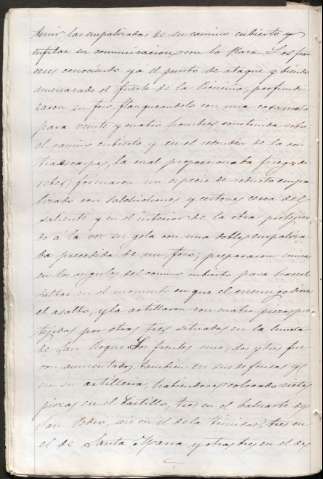 las empalizadas de su camino cubierto y
su comunicacion con la Plaza. Los fran
ceses conociendo ya el punto de ataque y viendo
amenazado el fuerte de la Picuriña, profundi
zaron su foso, flanqueandolo con una casamata
para veinte y cuatro hombres construida sobre
el camino cubierto y en el redondeo de la con
traescarpa, la cual proporcionaba fuegos de
reves; formaron un especie de reducto empa
lizado con salchichones y cestones cerca del
saliente y en el interior de la obra protegien
do á la vez su gola con una doble empaliza
da precedida de un foso; prepararon minas
en los angulos del camino cubierto para hacer
saltar en el momento en que el enemigo diera
el asalto, y la artillaron con cuatro piezas pro
tegidas por otras tres situadas en la luneta
de San Roque. Los fuertes fue
ron aumentados tambien en sus defensas y
en su artilleria, habiendose colocado siete
piezas en el Castillo, tres en el baluarte de
San Pedro, seis en el de la Trinidad, tres en
el de Santa Maria y otras tres en el de